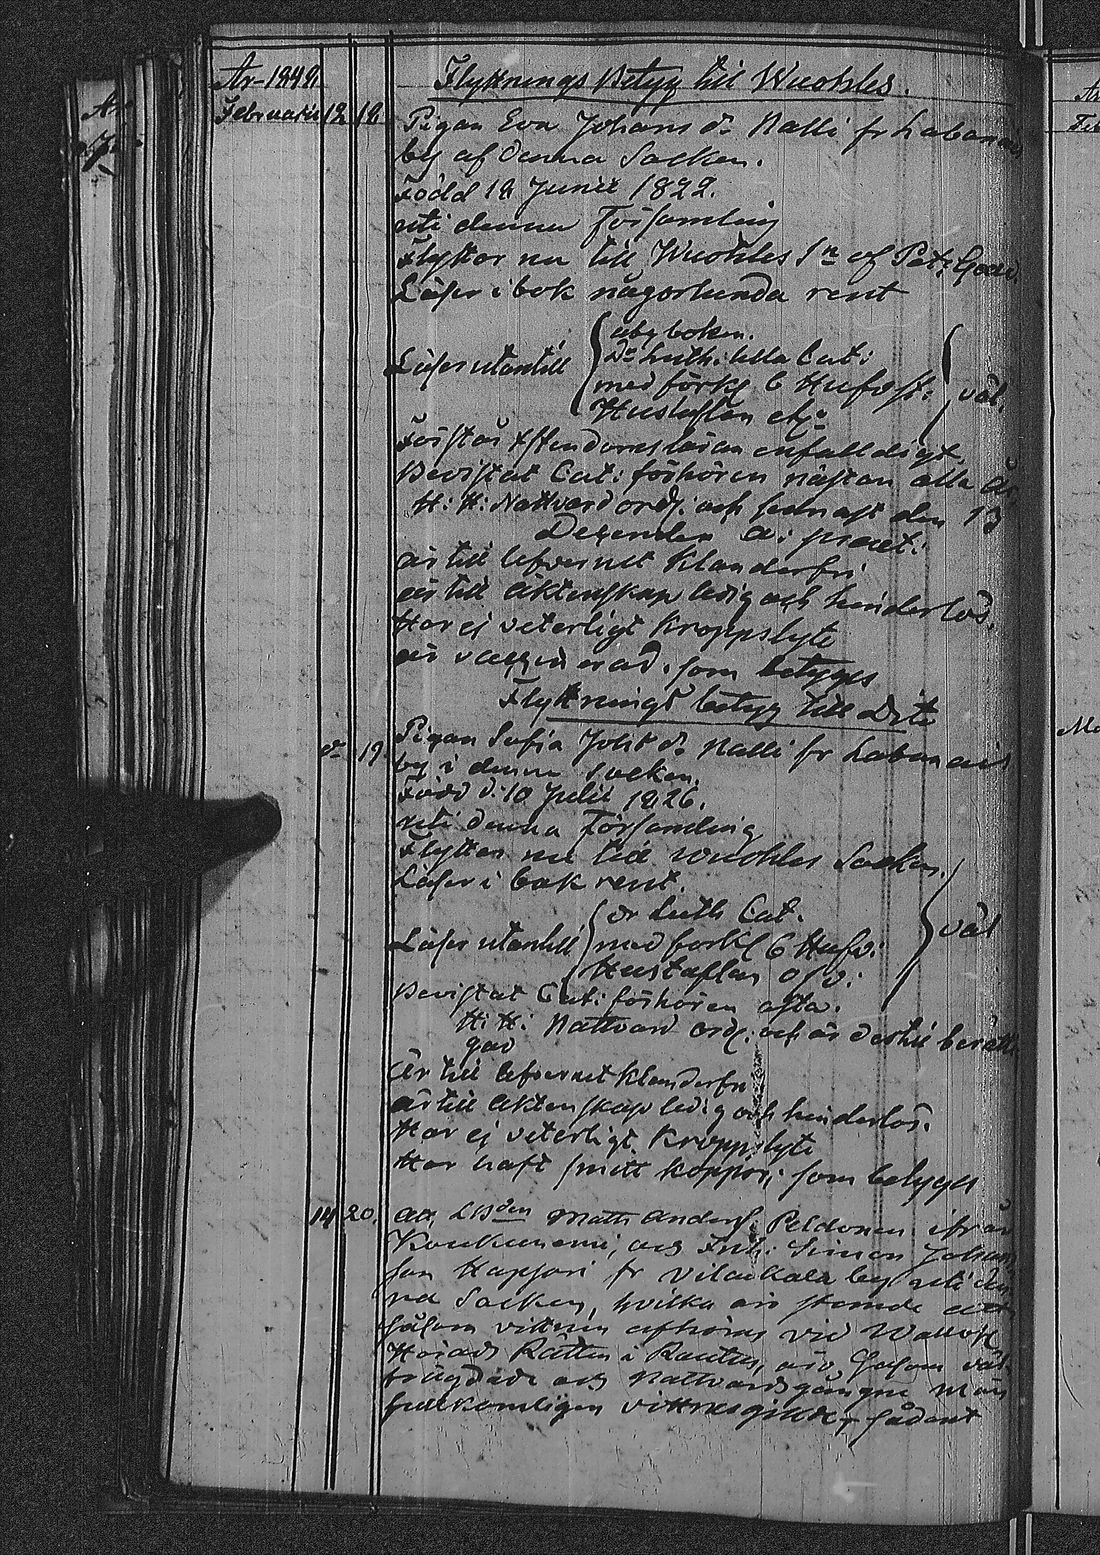 År 1848. Flyttnings Betyg till Wuohles.
Februarii 12 18 Pigan Eva Johans dr Nalli fr Labanais
by af denna Socken.
Född 18 Junii 1822.
uti denna Församling
Flyttar nu till Wuohles Sn af Pet: Gouv.
Läser i bok någorlunda rent
Läser utantill
abg boken.
Dr Luth: lilla Cat:
med förkl 6 Hufvst:
Hustaflan
väl.
Förstår enfalldigt
Bevistat Cat: förhören nästan alla år
H: H: Nattvard ordz: och sednast den 13
Dezember a: praet:
är till lefvernet Klanderfri
är till äktenskap ledig och hinderlös.
Har ej veterligt Kroppslyte
är vaccinerad. som betygas
Flyttnings betyg till Dito
dr 19. Pigan Sofia Joh: dr Nalli fr Labanais
by i denna Socken.
Född d: 10 Julii 1826.
uti denna Församling
Flyttar nu till Wuohles Socken.
Läser i bok rent.
Läser utantill
Dr Luth Cat.
med förkl 6 Hufv:
Hustaflan o. s. v:
väl
Bevistat Cat: förhören ofta.
H: H: Nattvard ordz: och är dertill berätti
gad
Är till lefvernet Klanderfri
är till äktenskap ledig och hinderlös.
Har ej veterligt Kroppslyte
Har haft smitt koppor; som betygas
14 20. att, Matts Anders: Peldonen ifrån
och Inh: Simon Johans
son Happoi fr Vilakkala by uti den
na Socken, hvilka äro stemde att
såsom vittnen afhöras vid
Härads Rätten i Rautus, äro såsom väl
frägdade och Nattvardsgångne Män
fullkomligen vittnesgilde, sådant